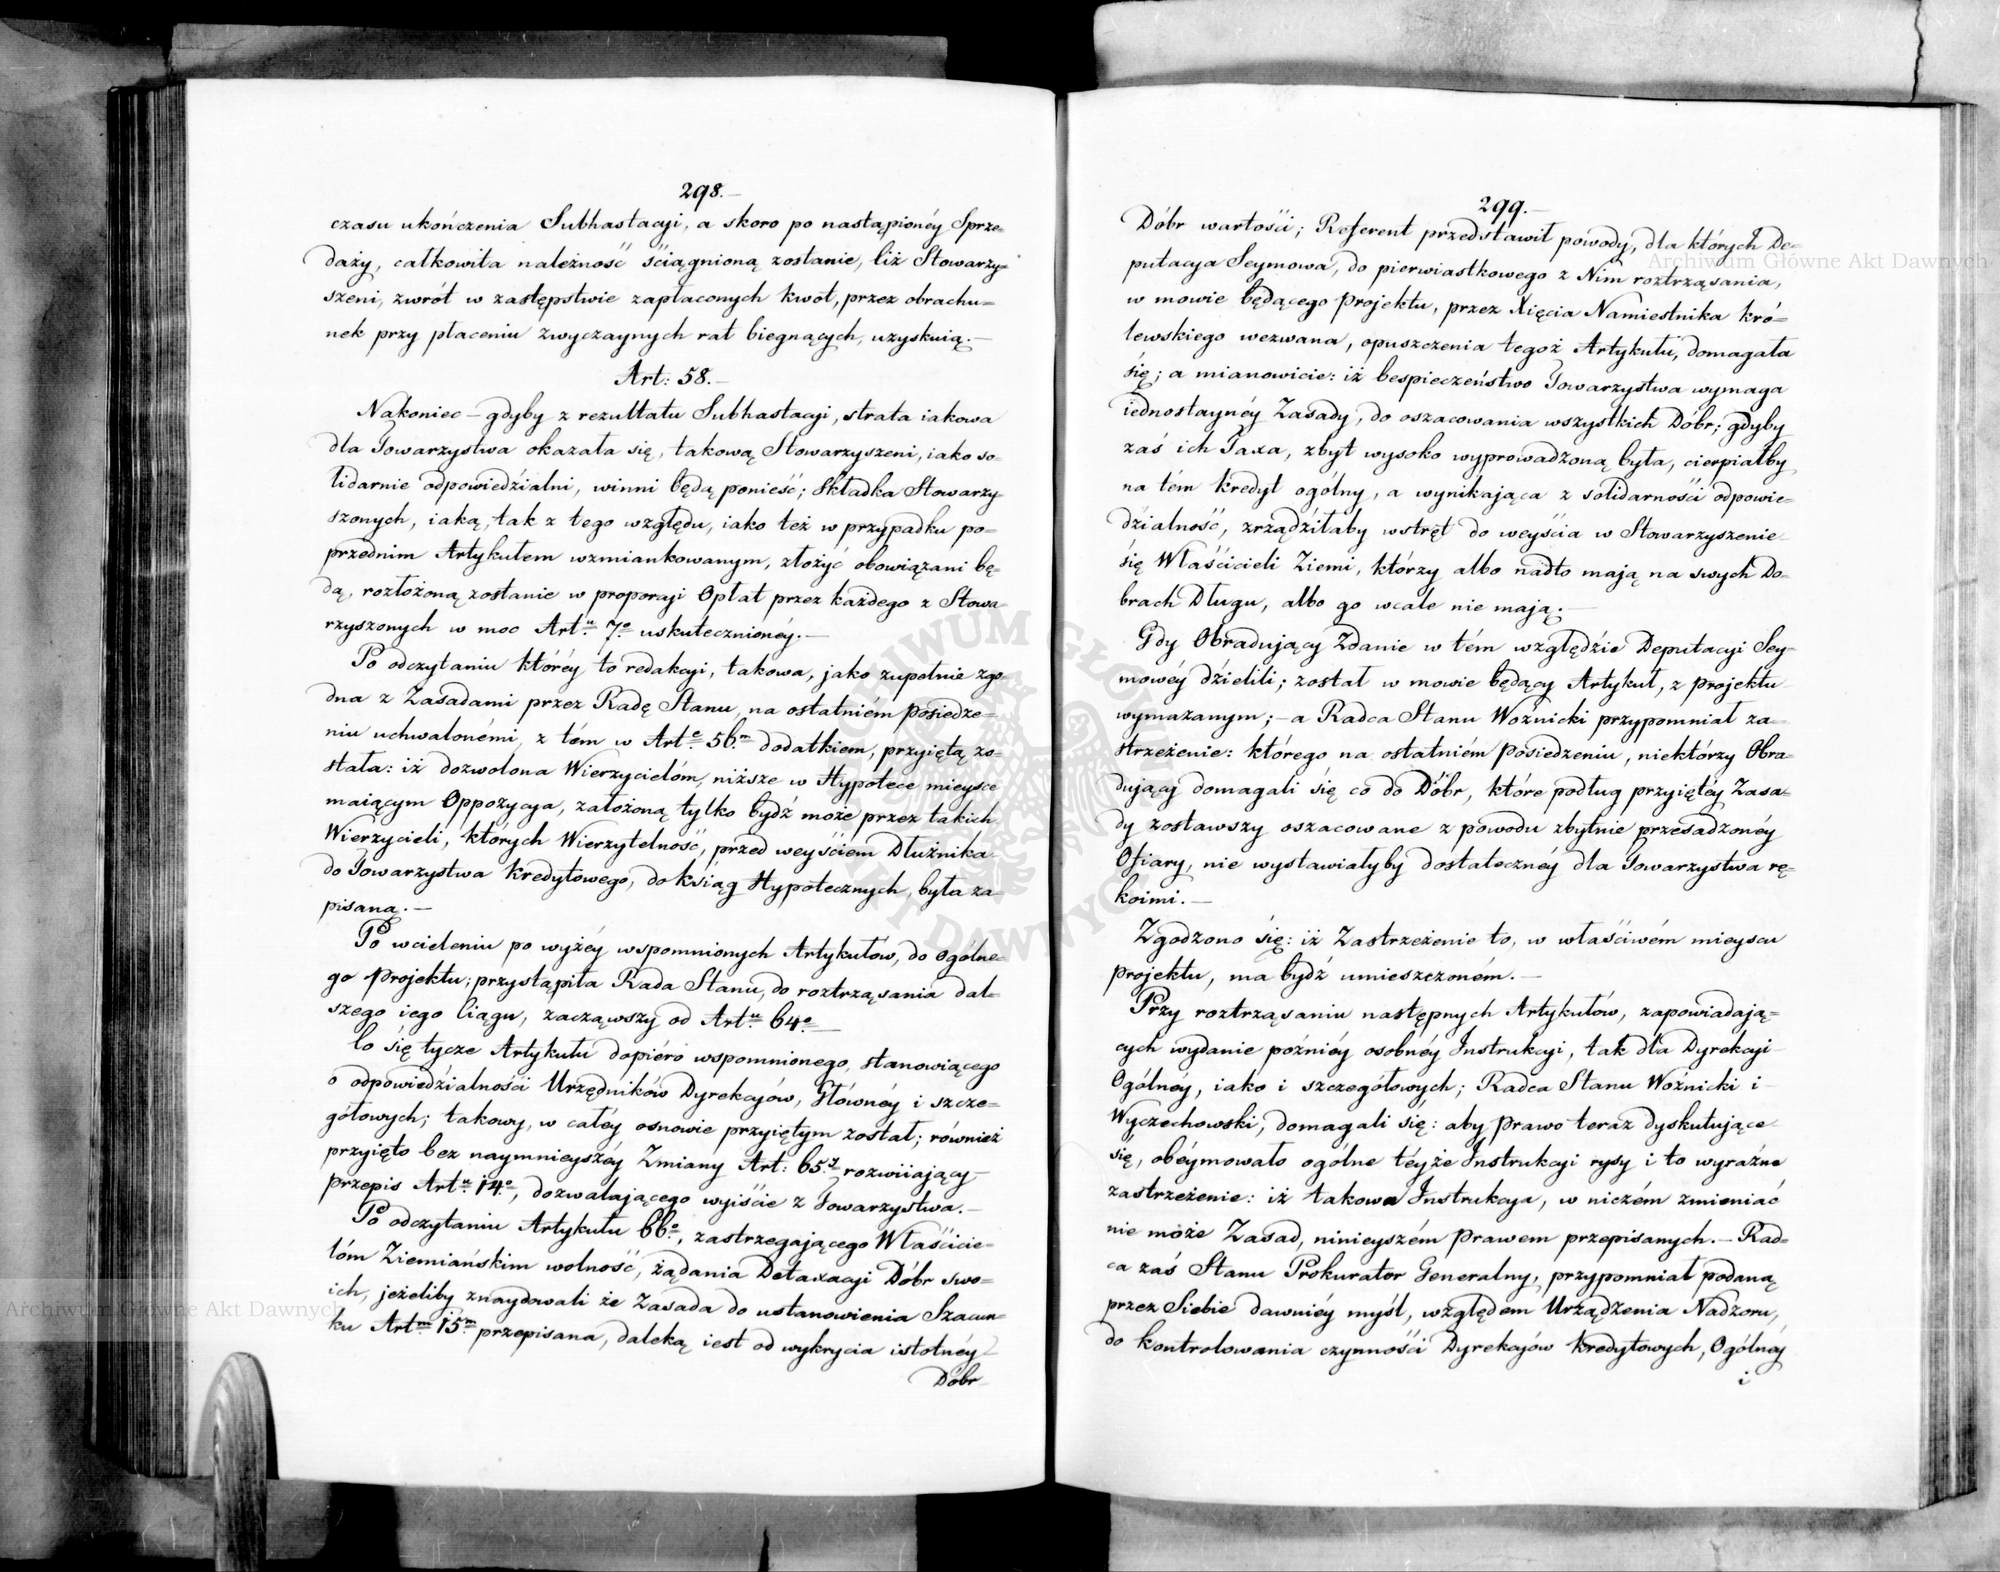 298.—
czasu ukończenia Subhastacyi, a skoro po nastąpionéy Sprze=
daży, całkowita należność ściągnioną zostanie, ciż Stowarzy=
szeni, zwrót w zastępstwie zapłaconych kwot, przez obrachu=
nek przy płaceniu zwyczaynych rat biegnących, uzyskuią.—
Art: 58.—
Nakoniec — gdyby z rezultatu Subhastacyi, strata iakowa
dla Towarzystwa okazała się, takową Stowarzyszeni, iako so=
lidarnie odpowiedzialni, winni będą ponieść; Składka Stowarzy=
szonych, iaką, tak z tego względu, iako też w przypadku po=
przednim Artykułem wzmiankowanym, złożyć obowiązani bę=
dą, rozłożoną zostanie w proporcyi Opłat przez każdego z Stowa=
rzyszonych w moc Art.u 7.o uskutecznionéy.—
Po odczytaniu któréy to redakcyi, takowa, jako zupełnie zgo=
dna z Zasadami przez Radę Stanu, na ostatniém posiedze=
niu uchwalonémi, z tém w Art.e 56.m dodatkiem, przyiętą zo=
stała: iż dozwolona Wierzycielóm, niższe w Hypotece mieysce
maiącym Oppozycya, założoną tylko bydź może przez takich
Wierzycieli, których Wierzytelność, przed weyściem Dłużnika
do Towarzystwa Kredytowego, do ksiąg Hypotecznych, była za=
pisaną.—
Po wcieleniu po wyżéy wspomnionych Artykułów, do Ogólne=
go projektu; przystąpiła Rada Stanu, do roztrząsania dal=
szego iego Ciągu, zacząwszy od Art.u 64.o
Co się tycze Artykułu dopiéro wspomnionego, stanowiącego
o odpowiedzialności Urzędników Dyrekcyów, Głównéy i szcze=
gółowych; takowy, w całéy osnowie przyiętym został; również
przyięto bez naymnieyszéy Zmiany Art: 65.y rozwiiający
przepis Art.u 14.o, dozwalającego wyiście z Towarzystwa.—
Po odczytaniu Artykułu 66.o, zastrzegającego Właścicie=
lóm Ziemiańskim wolność, żądania Detaxacyi Dóbr swo=
ich, jeżeliby znaydowali że Zasada do ustanowienia Szacun=
ku Art.m 15.m przepisana, daleką iest od wykrycia istotnéy
Dóbr
299.—
Dóbr wartości; Referent przedstawił powody, dla których De=
putacya Seymowa, do pierwiastkowego z Nim roztrząsania,
w mowie będącego projektu, przez Xięcia Namiestnika kró=
lewskiego wezwana, opuszczenia tegoż Artykułu, domagała
się; a mianowicie: iż bespieczeństwo Towarzystwa wymaga
iednostaynéy Zasady, do oszacowania wszystkich Dóbr; gdyby
zaś ich Taxa, zbyt wysoko wyprowadzoną była, cierpiałby
na tém kredyt ogólny, a wynikająca z solidarności odpowie=
dzialność, zrządziłaby wstręt do weyścia w Stowarzyszenie
się Właścicieli Ziemi, którzy albo nadto mają na swych Do=
brach Długu, albo go wcale nie mają.—
Gdy Obradujący Zdanie w tém względzie Deputacyi Sey=
mowéy dzielili; został w mowie będący Artykuł, z projektu
wymazanym; — a Radca Stanu Woźnicki przypomniał za=
strzeżenie: którego na ostatniém posiedzeniu, niektórzy Obra=
dujący domagali się co do Dóbr, które podług przyiętéy Zasa=
dy zostawszy oszacowane z powodu zbytnie przesadzonéy
Ofiary, nie wystawiałyby dostatecznéy dla Towarzystwa rę=
koimi.—
Zgodzono się: iż Zastrzeżenie to, w właściwém mieyscu
projektu, ma bydź umieszczoném.—
Przy roztrząsaniu następnych Artykułów, zapowiadają=
cych wydanie późniéy osobnéy Instrukcyi, tak dla Dyrekcyi
Ogólnéy, iako i szczegółowych; Radca Stanu Woźnicki i
Wyczechowski, domagali się: aby prawo teraz dyskutujące
się, obéymowało ogólne téyże Instrukcyi rysy i to wyraźne
zastrzeżenie: iż takowa Instrukcya, w niczém zmieniać
nie może Zasad, ninieyszém Prawem przepisanych.— Rad=
ca zaś Stanu Prokurator Generalny, przypomniał podaną
przez Siebie dawniéy myśl, względem Urządzenia Nadzoru,
do kontrolowania czynności Dyrekcyów kredytowych, Ogólnéy
i
Archiwum Główne Akt Dawnych
Archiwum Główne Akt Dawnych
ARCHIWUM GŁÓWNE AKT DAWNYCH